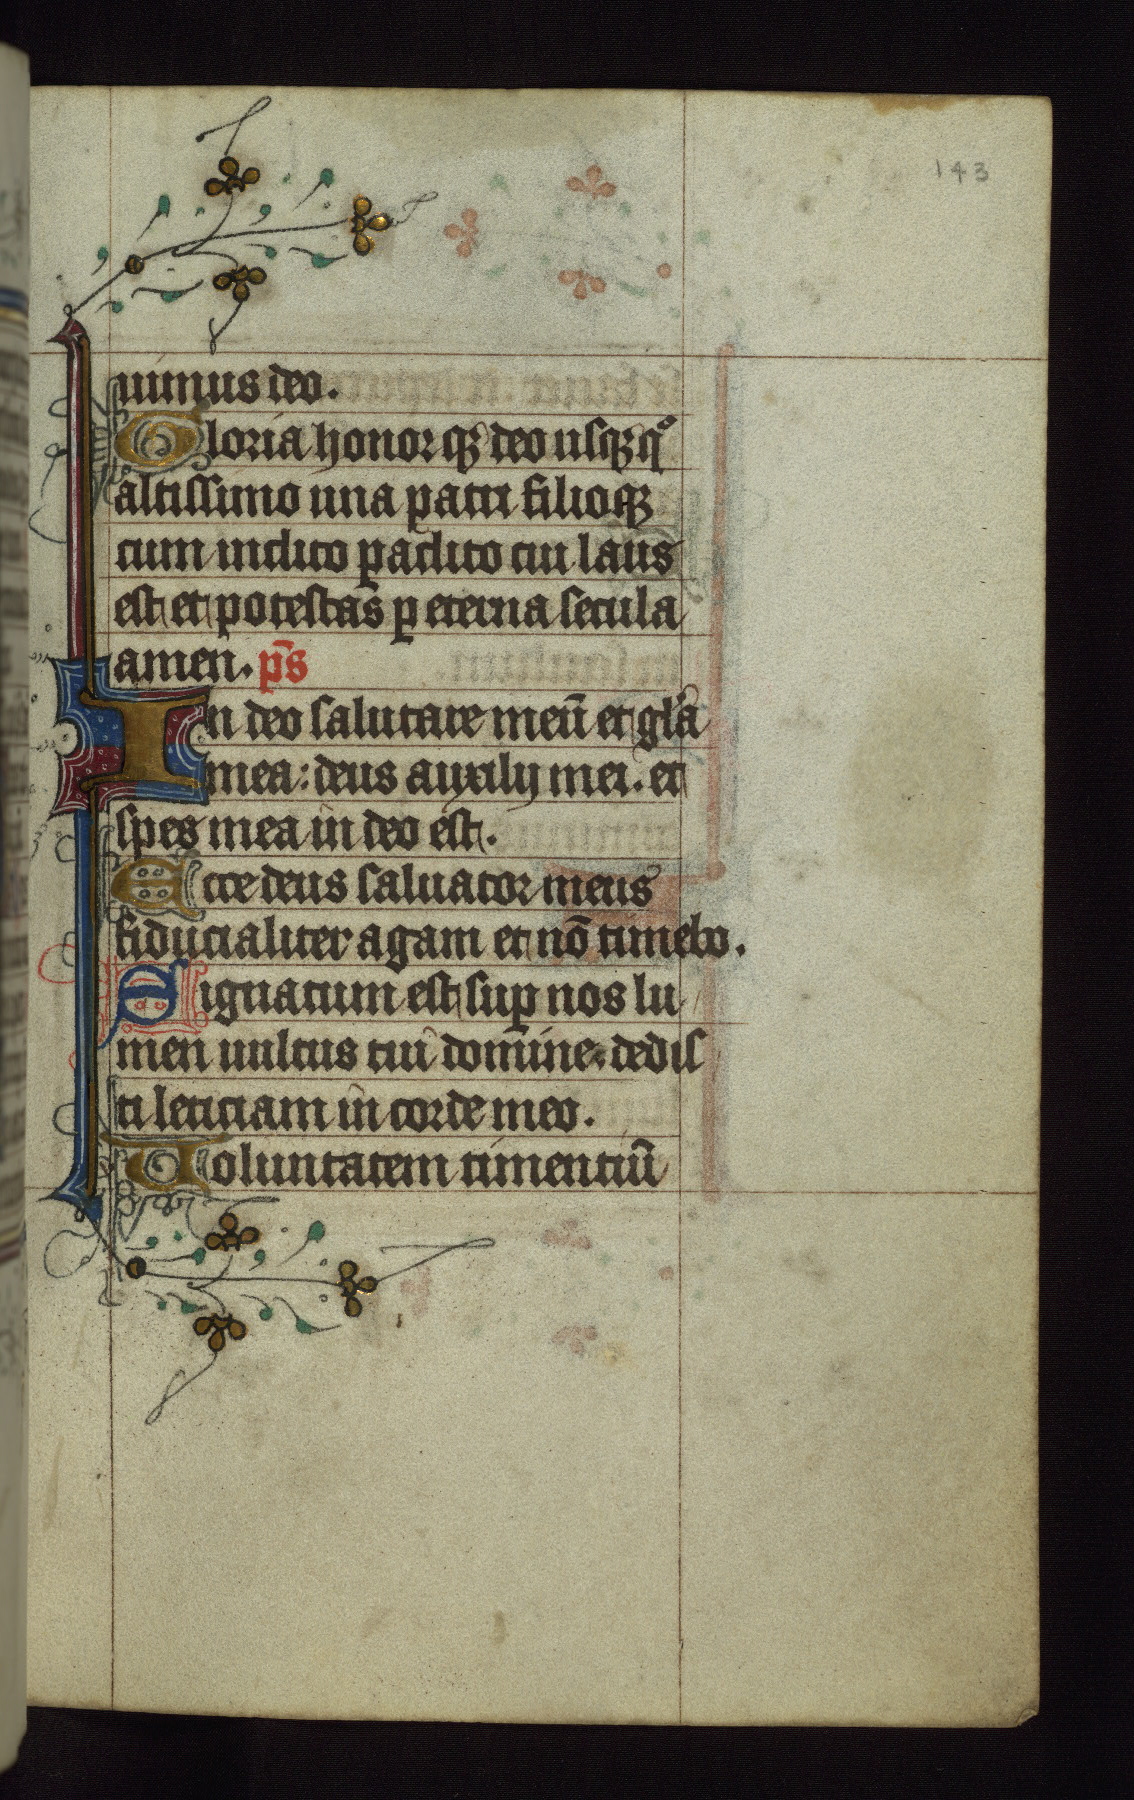 143
uimus deo.
Gloria honorqꝫ deo usqꝫqͦ
altissimo una patri filioqꝫ
cum inclito paclito cui laus
est et potestas ꝑ eterna secula
amen. p̄s
In deo salutare meū et gl̄a
mea: deus auxilij mei. et
spes mea in deo est.
Ecce deus saluator meus
fiducialiter agam et nō timebo.
Signatum est suꝑ nos lu
men uultus tui domine: dedis
ti leticiam in corde meo.
Uoluntatem timentiū